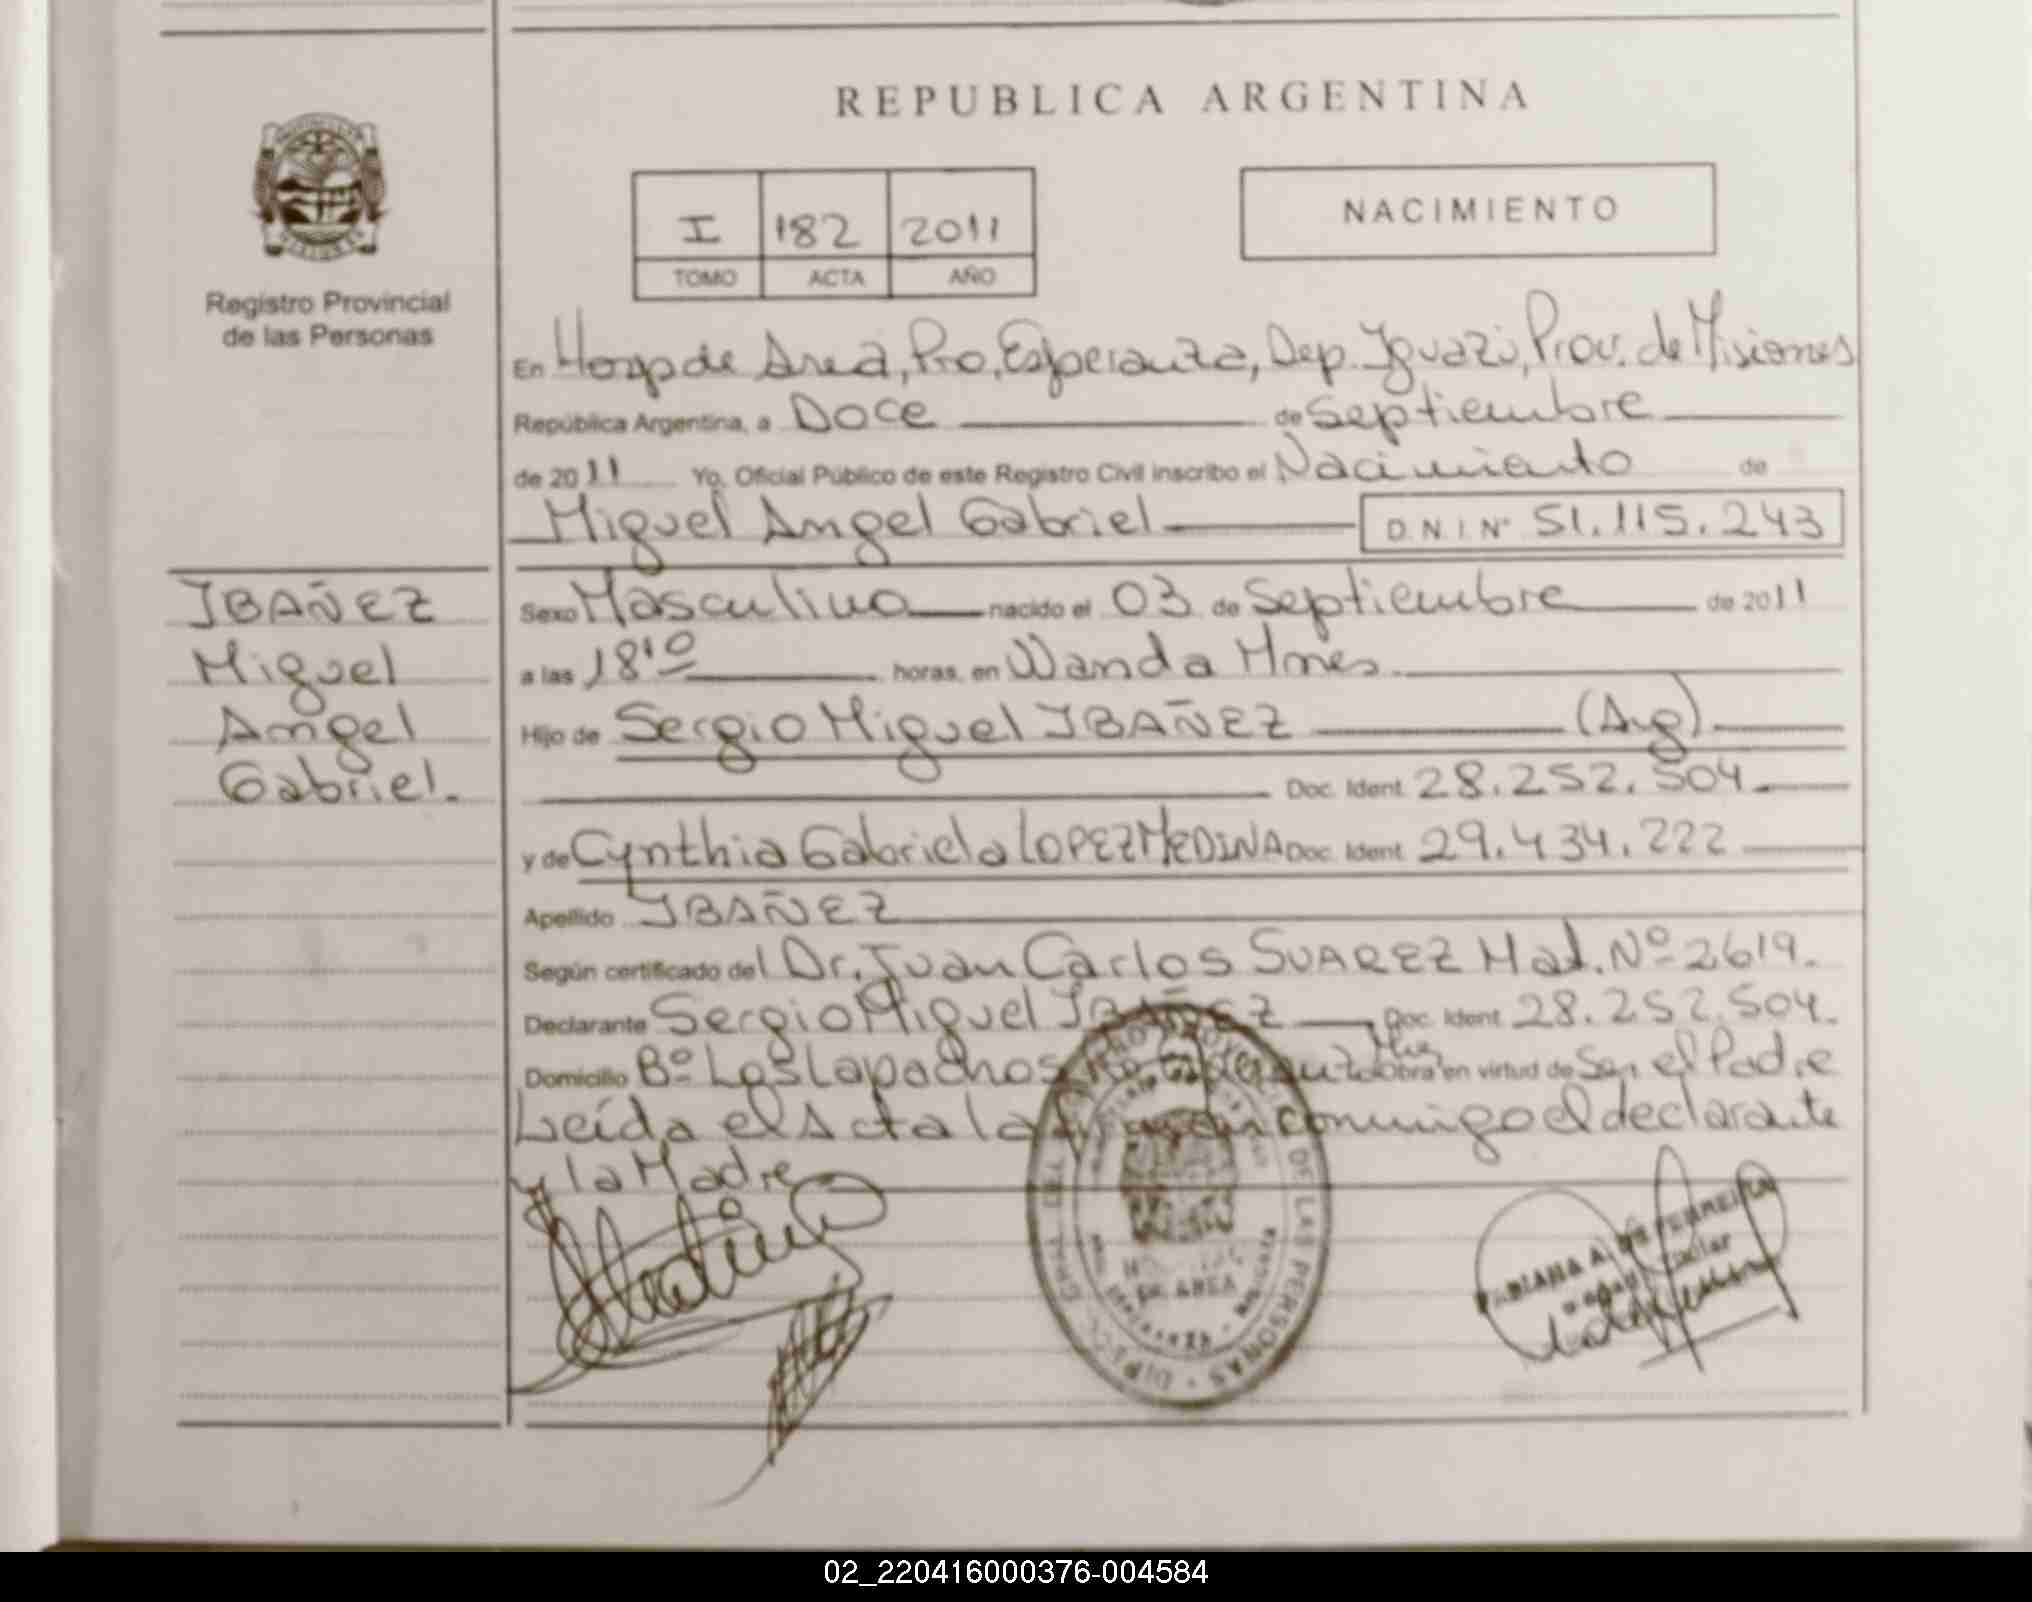 REPUBLICA ARGENTINA
I 182 2011
TOMO ACTA AÑO
NACIMIENTO
Registro Provincial
de las Personas
En Hosp de Area, Pto. Esperanza, Dep. Iguazú, Prov. de Misiones
República Argentina, a Doce de Septiembre
de 2011 Yo, Oficial Público de este Registro Civil inscribo el Nacimiento de
Miguel Angel Gabriel D.N.I. Nº 51.115.243
IBAÑEZ
Miguel
Angel
Gabriel.
Sexo Masculino nacido el 03 de Septiembre de 2011
a las 18¹⁰ horas, en Wanda Mnes.
Hijo de Sergio Miguel IBAÑEZ (Arg)
Doc. Ident. 28.252.504.
y de Cynthia Gabriela LOPEZ MEDINA Doc. Ident. 29.434.222
Apellido IBAÑEZ
Según certificado del Dr. Juan Carlos SUAREZ Mat. Nº 2619.
Declarante Sergio Miguel IBAÑEZ Doc. Ident. 28.252.504.
Domicilio Bº Los Lapachos Pto. Esperanza Mnes Obra en virtud de Ser el Padre
Leída el Acta la firman conmigo el declarante
y la Madre
DE LAS PERSONAS
DE AREA
FABIANA A. FERREIRA
02_220416000376-004584